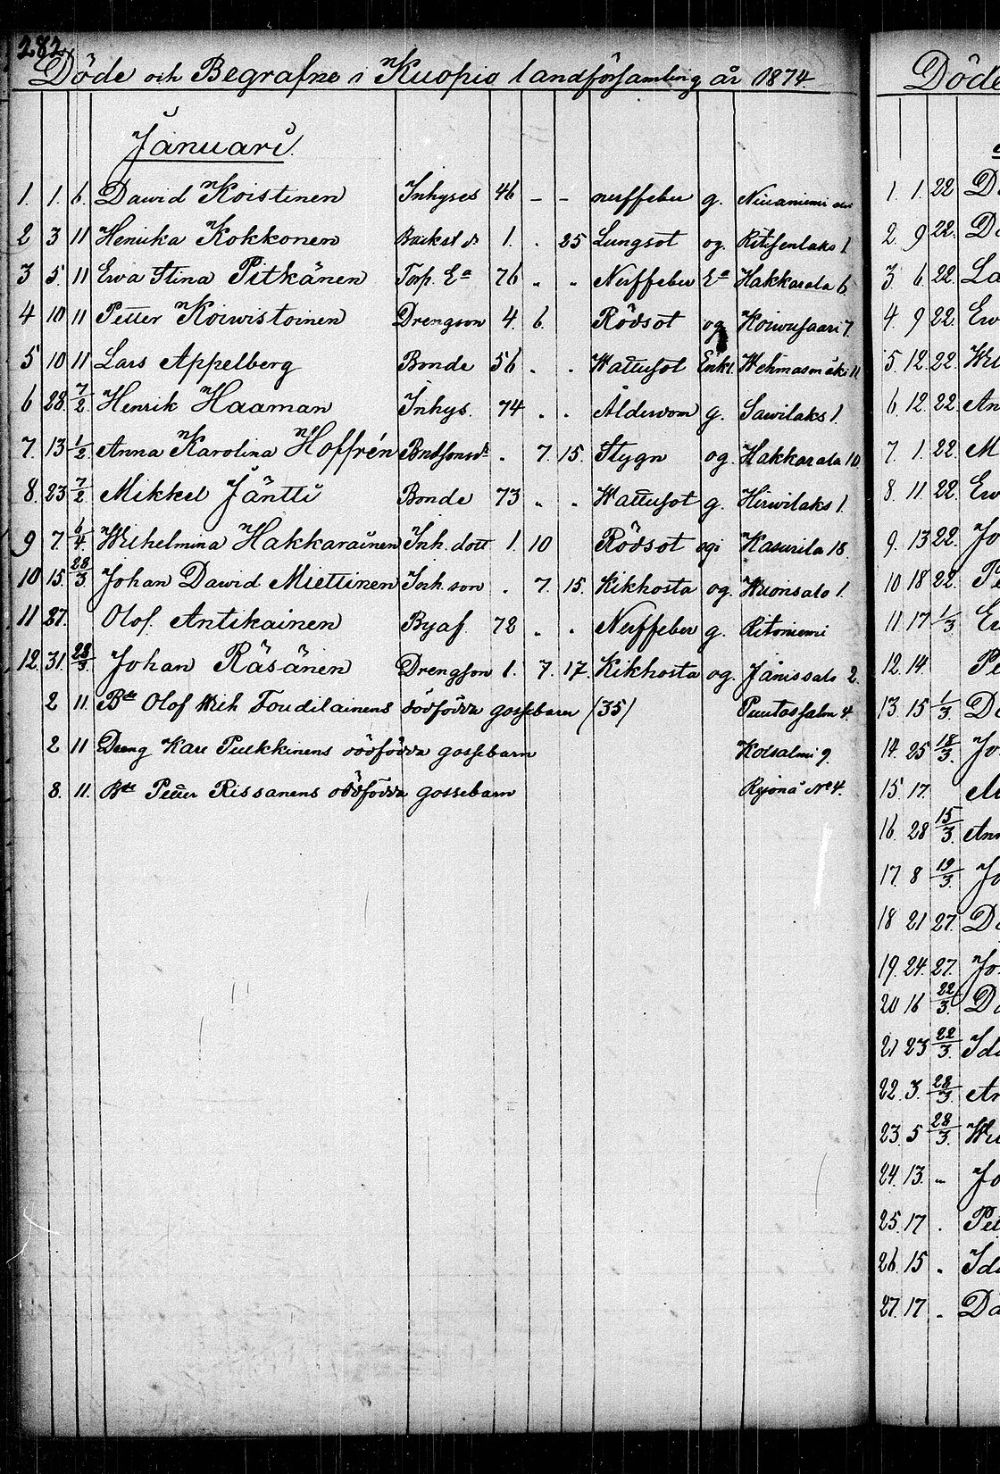 282
Döde och Begrafne i Kuopio landförsamling år 1874.
Januari.
1. 1. 6. David Koistinen Inhyses 46 - - nerffeber g.
2 3 11 Henrika Kokkonen 1. . 25 Lungsot og.
3 5. 11 Ewa Stina Pitkänen Torp. Ea 76 " " Nerffeber Ea Hakkarala 6.
4 10 11 Petter Koiwistoinen Drengson 4. 6. Rödsot og Koiwusaari 7.
5 10 11 Lars Appelberg Bonde 56 . . Wattusot Enkl. Wehmasmäki 11
6 28. 7/2 Henrik Haaman Inhys. 74 . . Ålderdom g. Sawilaks 1.
7. 13 1/2 Anna Karolina Hoffrén . 7. 15. Stygn og. Hakkarala 10
8. 23 7/2 Mikkel Jäntti Bonde 73 . . Wattusot g. Hirwilaks 1.
9 7. 6/4 Wilhelmina Hakkarainen Inh. dott 1. 10 Rödsot og Kasurila 18.
10 15. 28/3 Johan Dawid Miettinen Inh. son . 7. 15. Kikhosta og. Wuonsalo 1.
11 27. Olof Antikainen Byaf. 72 . . Nerffeber g. Ritoniemi
12. 31. 28/3. Johan Räsänen Drengson 1. 7. 17. Kikhosta og. Jänissalo 2.
2 11. Bde Olof Wilh. dödfödda gossebarn (35) Puutossalm 4.
2 11 Dreng Karl Pulkkinens dödfödda gossebarn Kotsalmi 9.
8. 11. Bde Petter Rissanens dödfödda gossebarn No 4.
Döde
1. 1. 22
2. 9 22.
3. 6. 22. La
4. 9 22. Ew
5. 12. 22.
6. 12. 22. An
7 1. 22. M
8. 11. 22. Ew
9. 13 22. Jo
10 18 22. P
11. 17 1/3 E
12. 14. Pe
13. 15 1/3 D
14. 25 18/3. Jo
15. 17.
16. 28 15/3. Ann
17. 8 19/3. Jo
18 21 27. D
19. 24. 27. Jo
20 16 22/3. D
21 23 22/3. Ida
22. 3. 28/3. An
23. 5 28/3.
24. 13. - Jo
25. 17 . Pet
26. 15 . Ida
27. 17 . Da